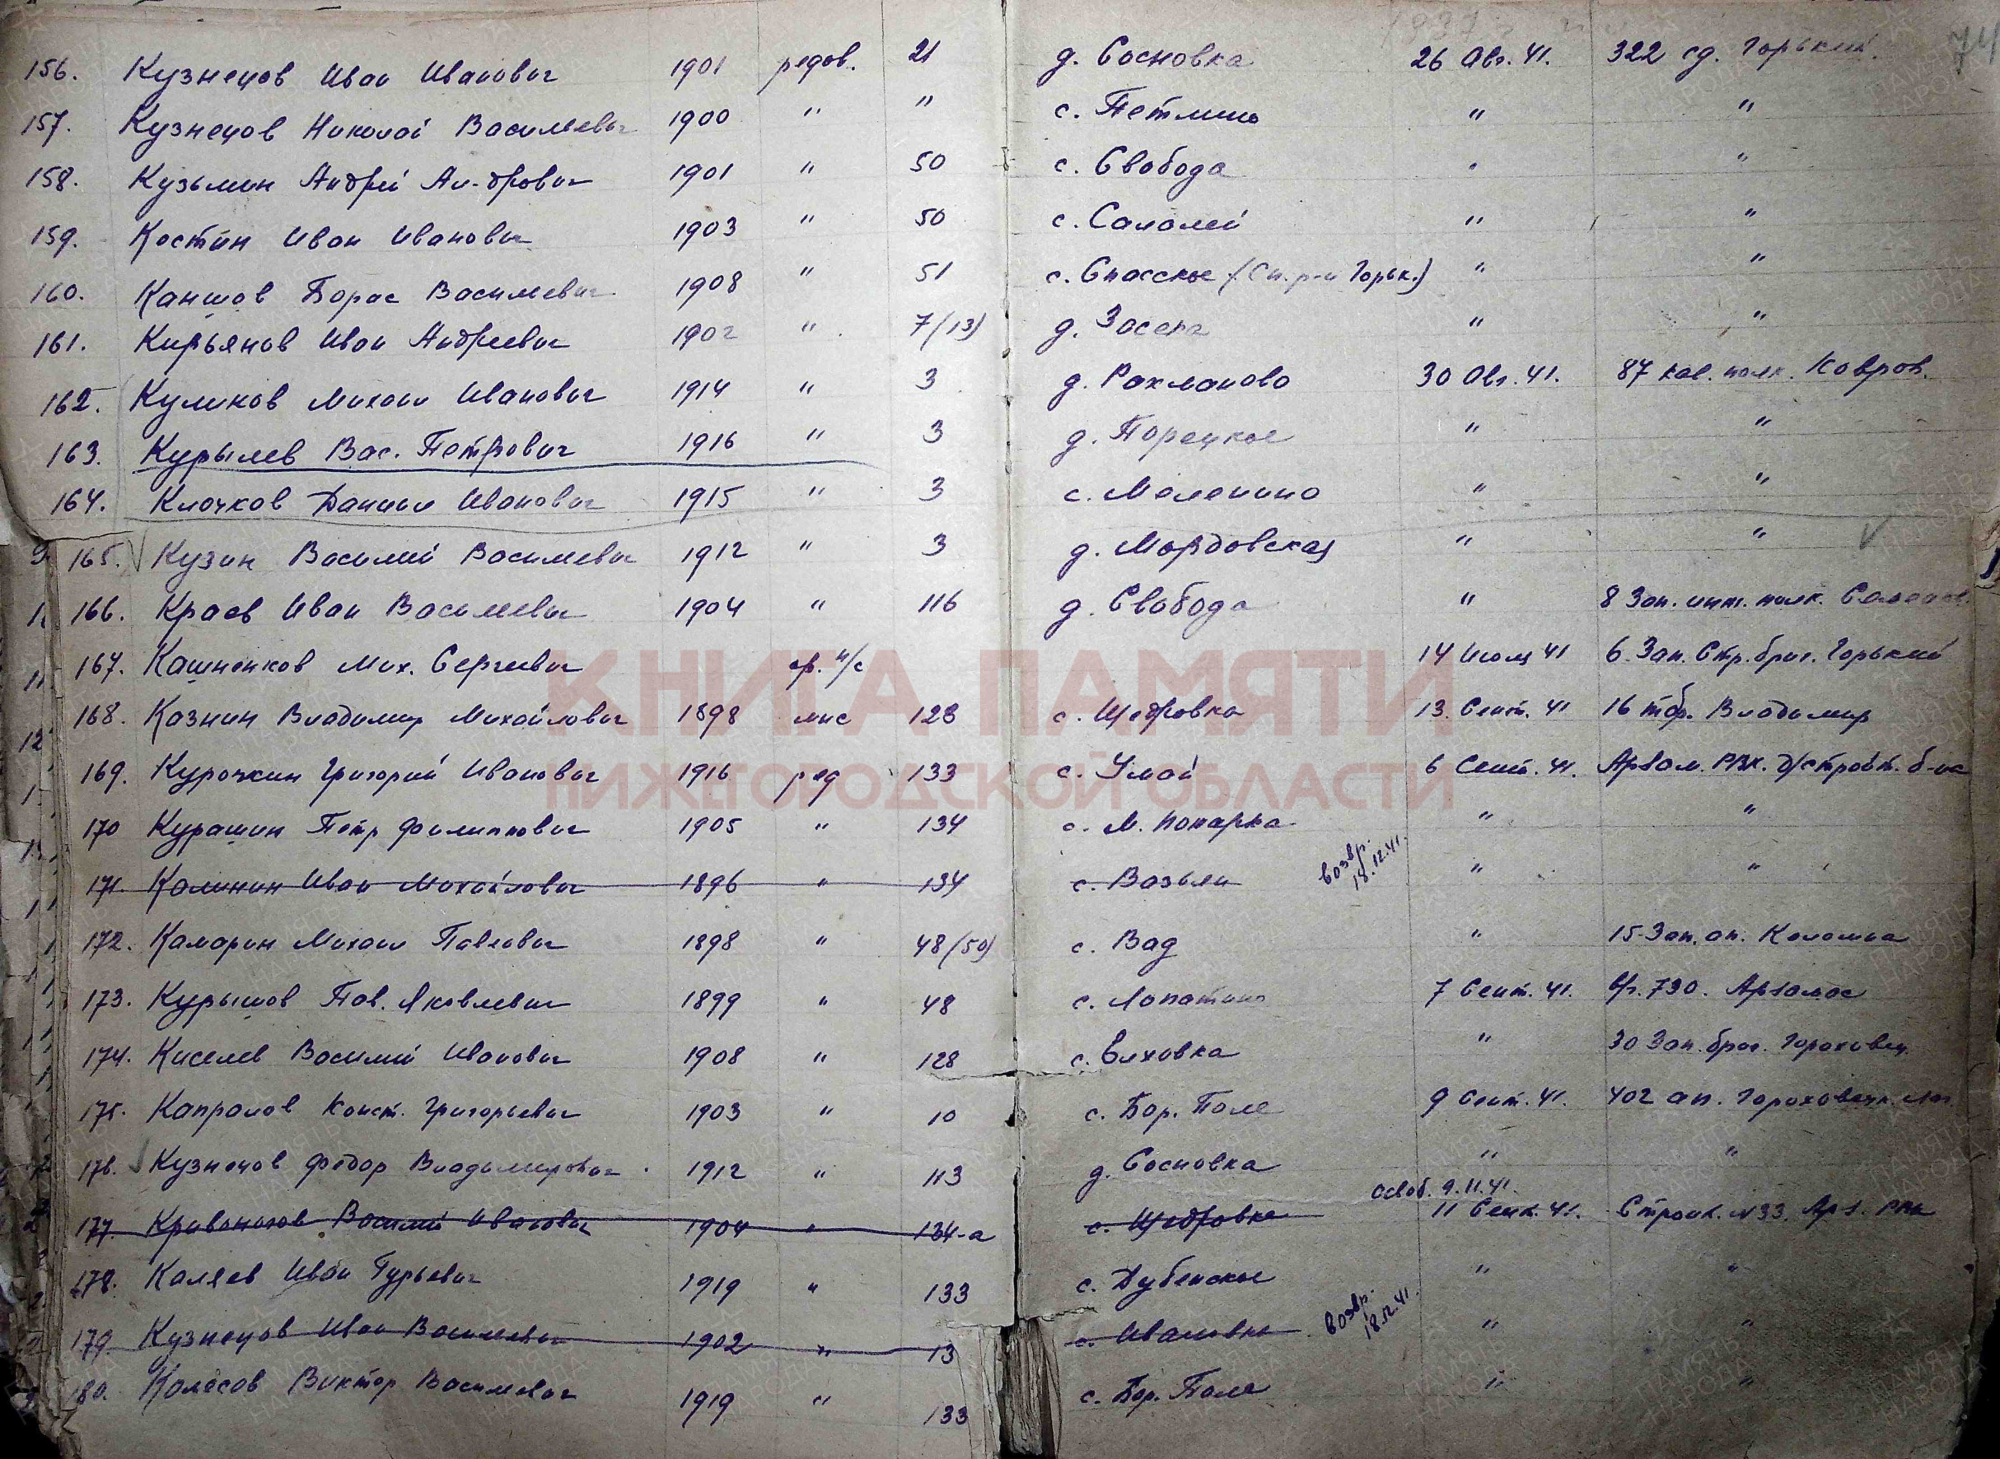 74
156. Кузнецов Иван Иванович 1901 рядов. 21 д. Сосновка 26 Авг. 41. 322 сд. Горький.
157. Кузнецов Николай Васильевич 1900 " " с. Петлино " "
158. Кузьмин Андрей Ан-дрович 1901 " 50 с. Свобода " "
159. Костин Иван Иванович 1903 " 50 с. Салалей " "
160. Каншов Борис Васильевич 1908 " 51 с. Спасское (Сп. р-н Горьк.) " "
161. Кирьянов Иван Андреевич 1902 " 7/13) д. Засека " "
162. Куликов Михаил Иванович 1914 " 3 д. Рахманово 30 Авг. 41. 87 кав. полк. Ковров.
163. Курылев Вас. Петрович 1916 " 3 д. Порецкое " "
164. Клочков Даниил Иванович 1915 " 3 с. Меленино " "
165. Кузин Василий Васильевич 1912 " 3 д. Мордовская " "
166. Краев Иван Васильевич 1904 " 116 д. Свобода " 8 Зап. инт. полк.
167. Кашненков Мих. Сергеевич ср. н/с 14 Июля 41 6. Зап. Стр. бриг. Горький
168. Казнин Владимир Михайлович 1898 мнс 123 с. Щедровка 13. Сент. 41 16 тбр. Владимир
169. Курочкин Григорий Иванович 1916 ряд 133 с. Умай 6 Сент. 41. Арзам. РВК. д/строит. б-на
170 Курашин Петр Филиппович 1905 " 134 с. М. Понарка " "
171. Калинин Иван Михайлович 1896 " 134 с. Вазьян возвр. 18.12.41. " "
172. Камарин Михаил Павлович 1898 " 48 (50) с. Вад " 15 Зап. ап. Коломна
173. Курышов Пав. Яковлевич 1899 " 48 с. Лопатино 7 Сент. 41. 730. Арзамас
174. Киселев Василий Иванович 1908 " 128 с. Елховка " 30 Зап. бриг. Гороховец.
175. Капралов Конст. Григорьевич 1903 " 10 с. Бор. Поле 9 Сент. 41. 402 ап. Гороховецк. лаг.
176. Кузнецов Федор Владимирович 1912 " 113 д. Сосновка " "
177. Кривоногов Василий Иванович 1904 " 134-а с. Щедровка освоб. 9.11.41. 11 Сент. 41. Строит. №33. Арз. РВК
178. Каляев Иван Гурьевич 1919 " 133 с. Дубенское " "
179. Кузнецов Иван Васильевич 1902 " 13 с. Ивановка возвр. 18.12.41. " "
180. Колесов Виктор Васильевич 1919 " 133 с. Бор. Поле " "
КНИГА ПАМЯТИ
НИЖЕГОРОДСКОЙ ОБЛАСТИ